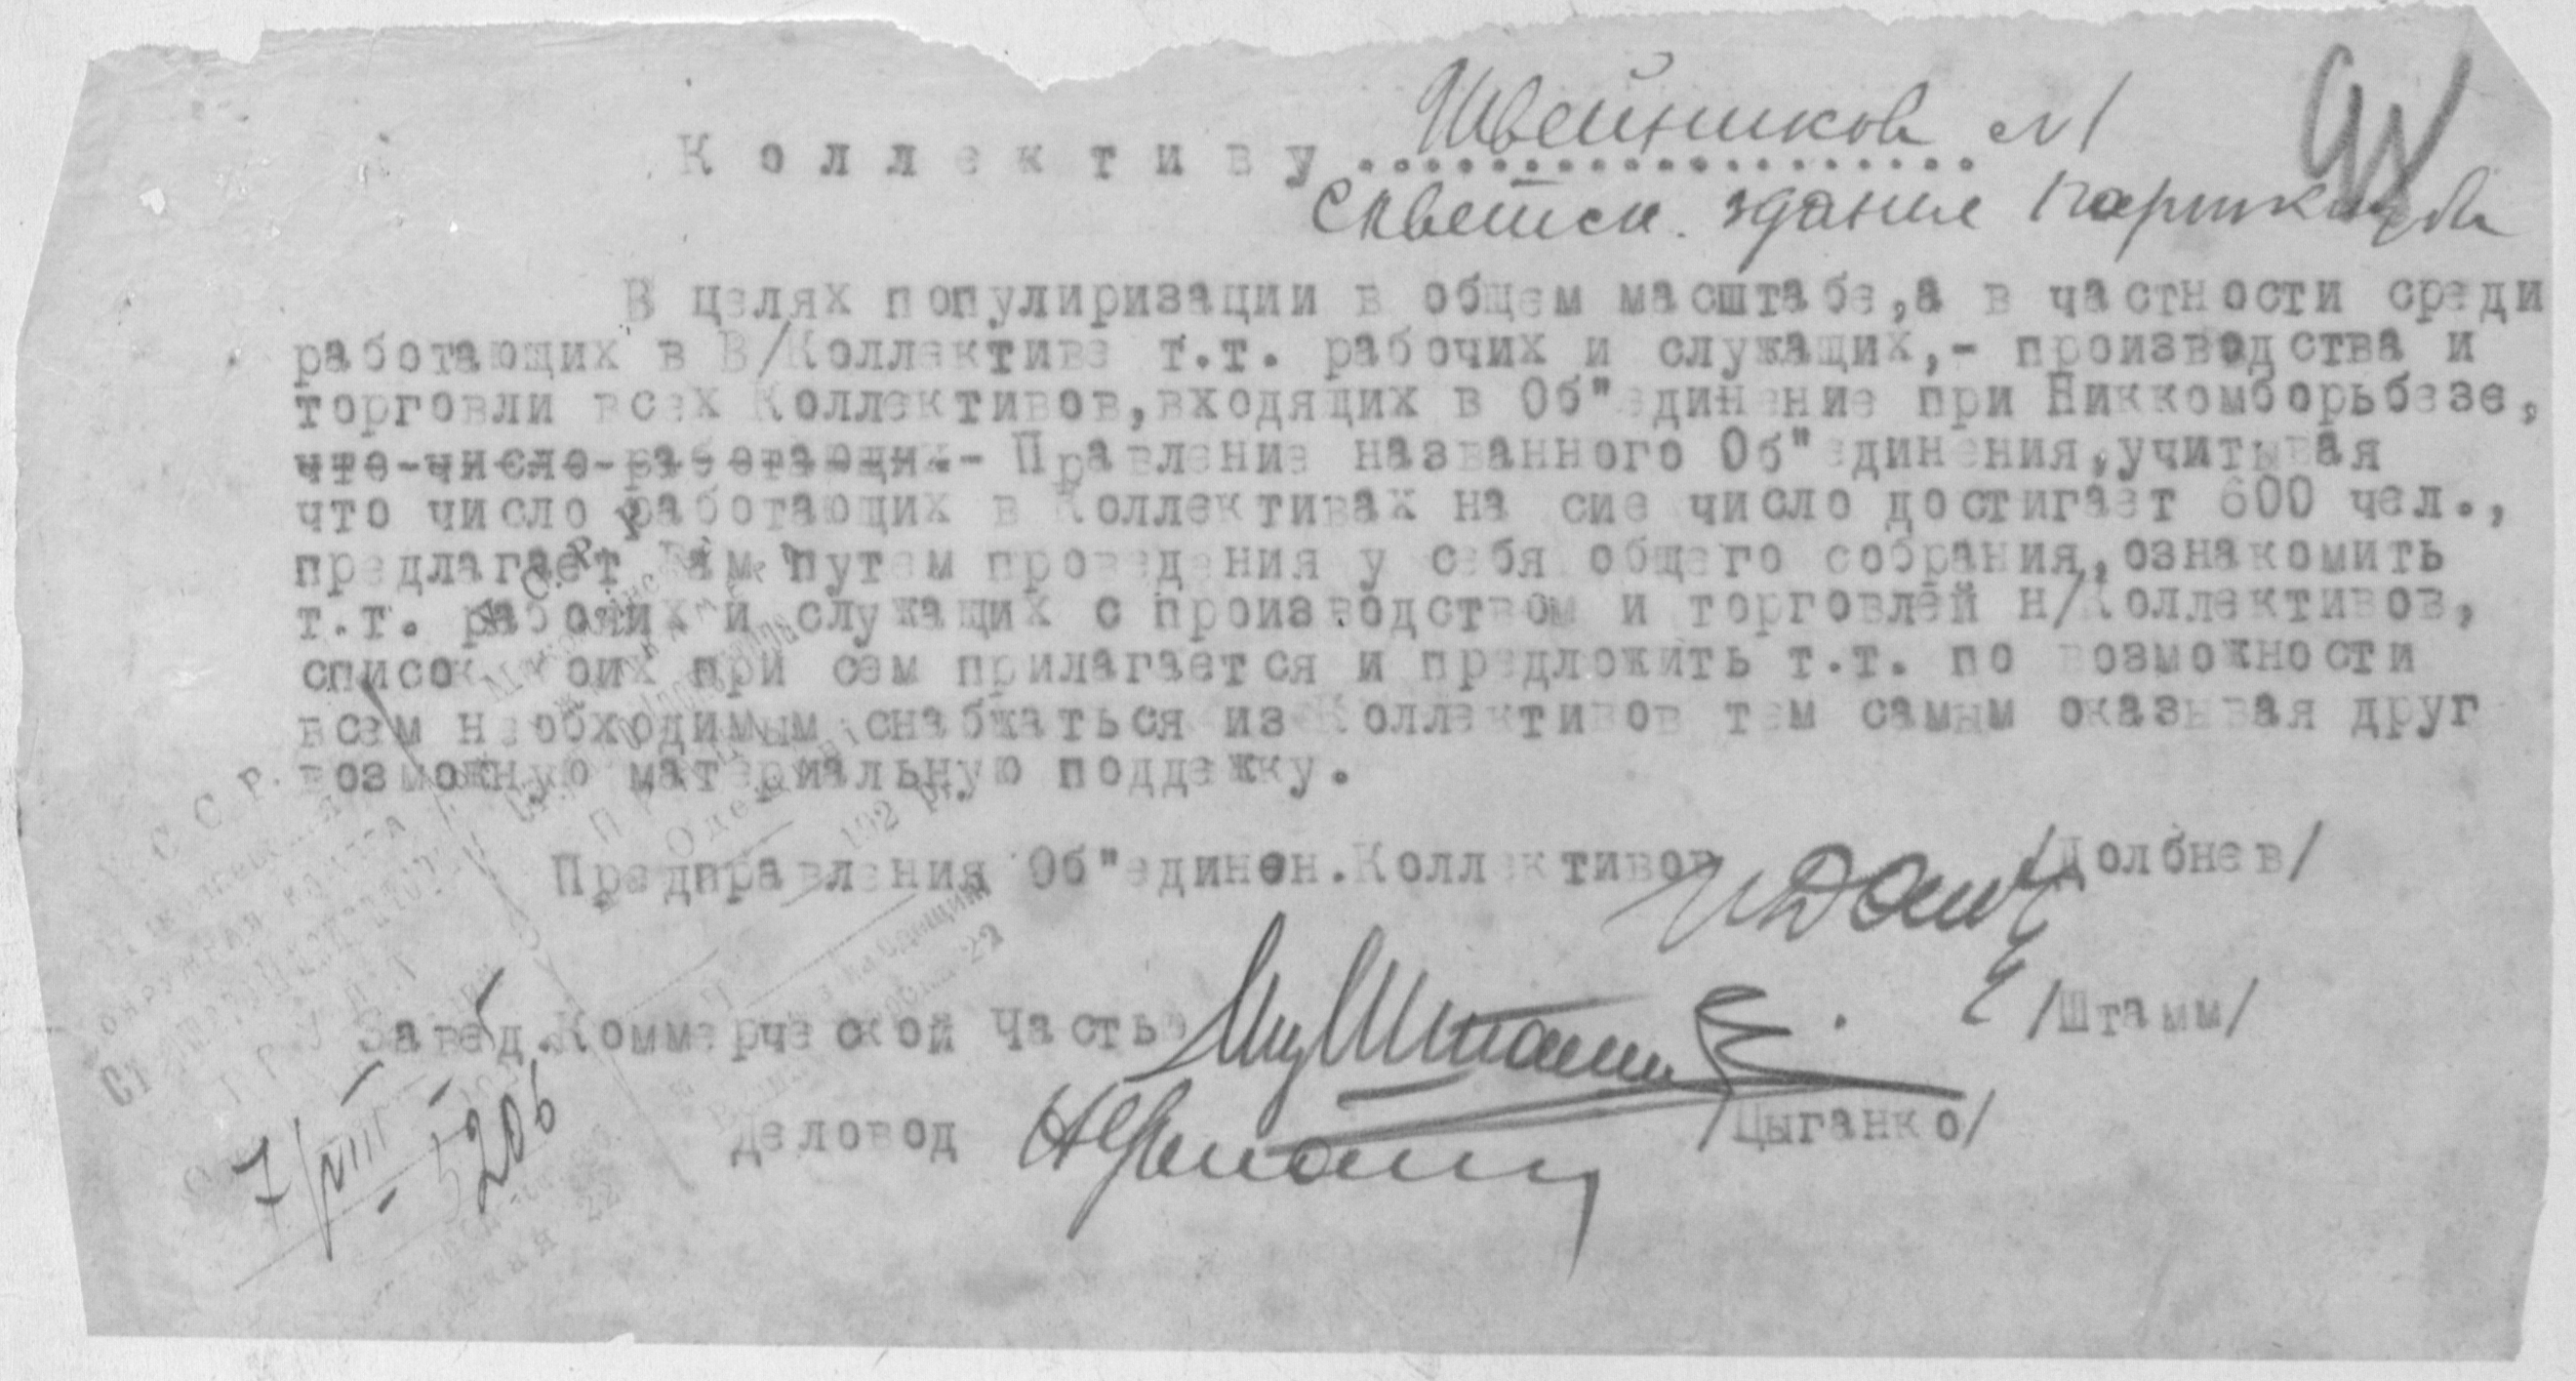 Коллективу Швейников №1
здание
В целях популиризации в общем масштабе,а в частности среди
работающих в В/Коллективе т.т. рабочих и служащих,- производства и
торговли всех Коллективов,входящих в Об"единение при Никкомборьбезе,
что-число-работающих-- Правление названного Об"единения,учитывая
что число работающих в Коллективах на сие число достигает 600 чел.,
предлагает Вам путем проведения у себя общего собрания,ознакомить
т.т. рабочих и служащих с производством и торговлей н/Коллективов,
список коих при сем прилагается и предложить т.т. по возможности
всем необходимым снабжаться из Коллективов тем самым оказывая друг
возможную материальную поддежку.
Предправления Об"единен.Коллективов /Долбнев/
Завед.Коммерческой Частью /Штамм/
Деловод /Цыганко/
7/VIII
5206